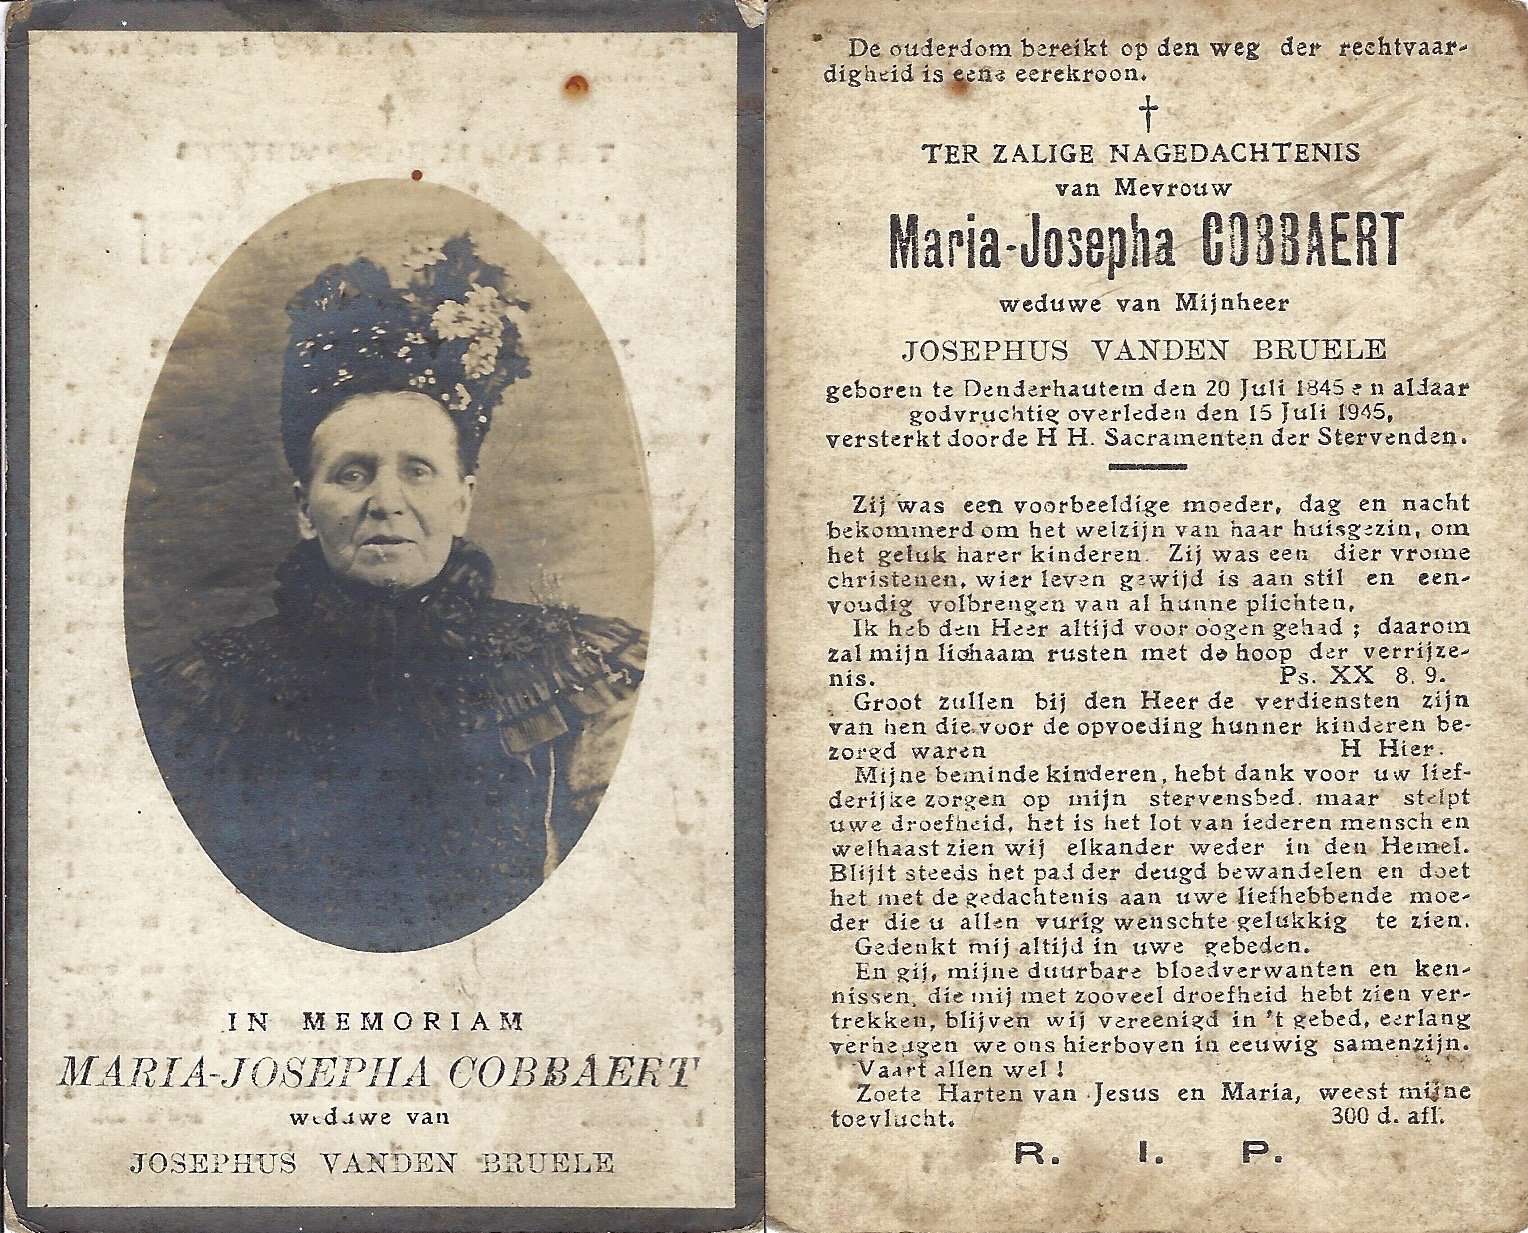 IN MEMORIAM
MARIA-JOSEPHA COBBAERT
weduwe van
JOSEPHUS VANDEN BRUELE
De ouderdom bereikt op den weg der rechtvaar-
digheid is eene eerekroon.
†
TER ZALIGE NAGEDACHTENIS
van Mevrouw
Maria-Josepha COBBAERT
weduwe van Mijnheer
JOSEPHUS VANDEN BRUELE
geboren te Denderhautem den 20 Juli 1845 en aldaar
godvruchtig overleden den 15 Juli 1945,
versterkt door de H H. Sacramenten der Stervenden.
Zij was een voorbeeldige moeder, dag en nacht
bekommerd om het welzijn van haar huisgezin, om
het geluk harer kinderen. Zij was een dier vrome
christenen, wier leven gewijd is aan stil en een-
voudig volbrengen van al hunne plichten,
Ik heb den Heer altijd voor oogen gehad ; daarom
zal mijn lichaam rusten met de hoop der verrijze-
nis. Ps. XX 8. 9.
Groot zullen bij den Heer de verdiensten zijn
van hen die voor de opvoeding hunner kinderen be-
zorgd waren H Hier.
Mijne beminde kinderen, hebt dank voor uw lief-
derijke zorgen op mijn stervensbed. maar stelpt
uwe droefheid, het is het lot van iederen mensch en
welhaast zien wij elkander weder in den Hemel.
Blijft steeds het pad der deugd bewandelen en doet
het met de gedachtenis aan uwe liefhebbende moe-
der die u allen vurig wenschte gelukkig te zien.
Gedenkt mij altijd in uwe gebeden.
En gij, mijne duurbare bloedverwanten en ken-
nissen, die mij met zooveel droefheid hebt zien ver-
trekken, blijven wij vereenigd in 't gebed, eerlang
verheugen we ons hierboven in eeuwig samenzijn.
Vaart allen wel !
Zoete Harten van Jesus en Maria, weest mijne
toevlucht. 300 d. afl.
R. I. P.